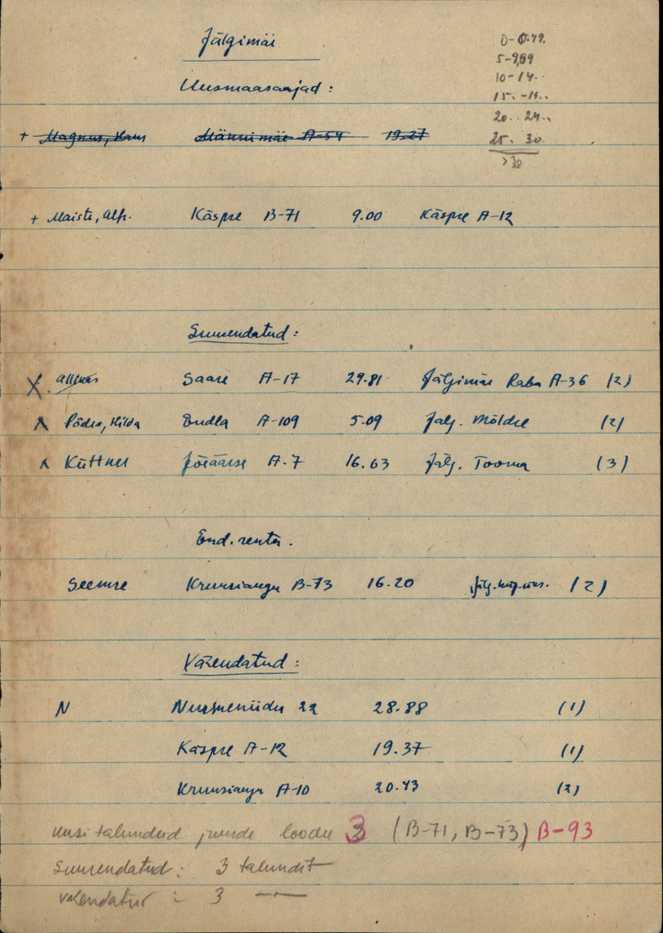 Jälgimäe
0-0.49.
5-9,99
10-14..
15.-19..
Uusmaasaajad:
20..24..
+ Magnus, Hans Männimäe A-54 19.27
25. 30
>30
+ Maiste, Alfr. Käspre B-71 9.00 Käspre A-12
Suurendatud:
X Saare A-17 29.81 Jälgimäe Raba A-36 (2)
Põdra, Hilda Endla A-109 5.09 Jälg. Möldre (2)
Küttner Jõeäärse A-7 16.63 Jälg. Tooma (3)
End. rentn.
Seemre Kruusiaugu B-73 16.20 (2)
Vähendatud:
N Nurmeniidu 22 28.88 (1)
Käspre A-12 19.37 (1)
Kruusiaugu A-10 20.43 (2)
uusi talundeid juurde loodu 3 (B-71, B-73) B-93
suurendatud: 3 talundit
vähendatud : 3 —"—